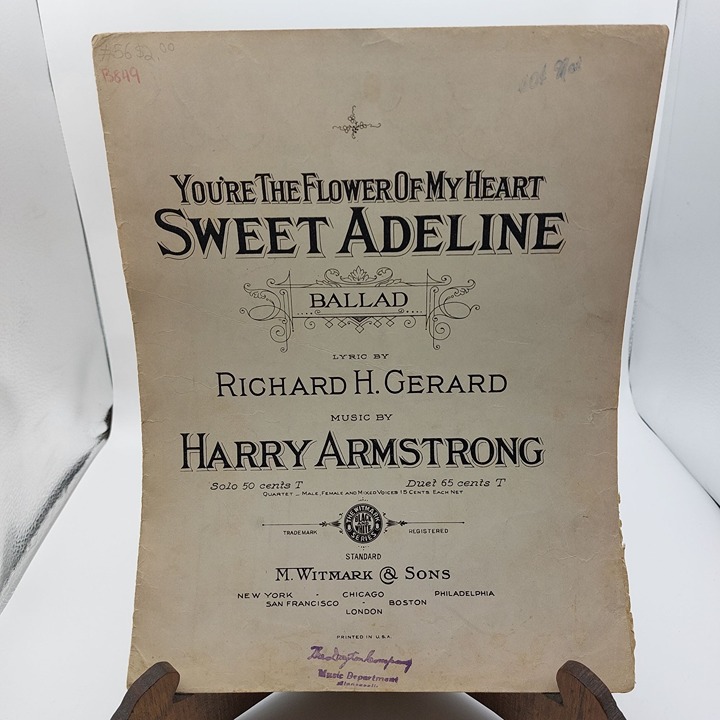 #56 $2.00
B849
YOU'RE THE FLOWER OF MY HEART
SWEET ADELINE
BALLAD
LYRIC BY
RICHARD H. GERARD
MUSIC BY
HARRY ARMSTRONG
Solo 50 cents T Duet 65 cents T
QUARTET _ MALE, FEMALE AND MIXED VOICES 15 CENTS EACH NET
TRADEMARK THE WITMARK BLACK AND WHITE SERIES REGISTERED
STANDARD
M. WITMARK & SONS
NEW YORK · CHICAGO PHILADELPHIA
SAN FRANCISCO · BOSTON
LONDON
PRINTED IN U.S.A.
The Dayton Company
Music Department